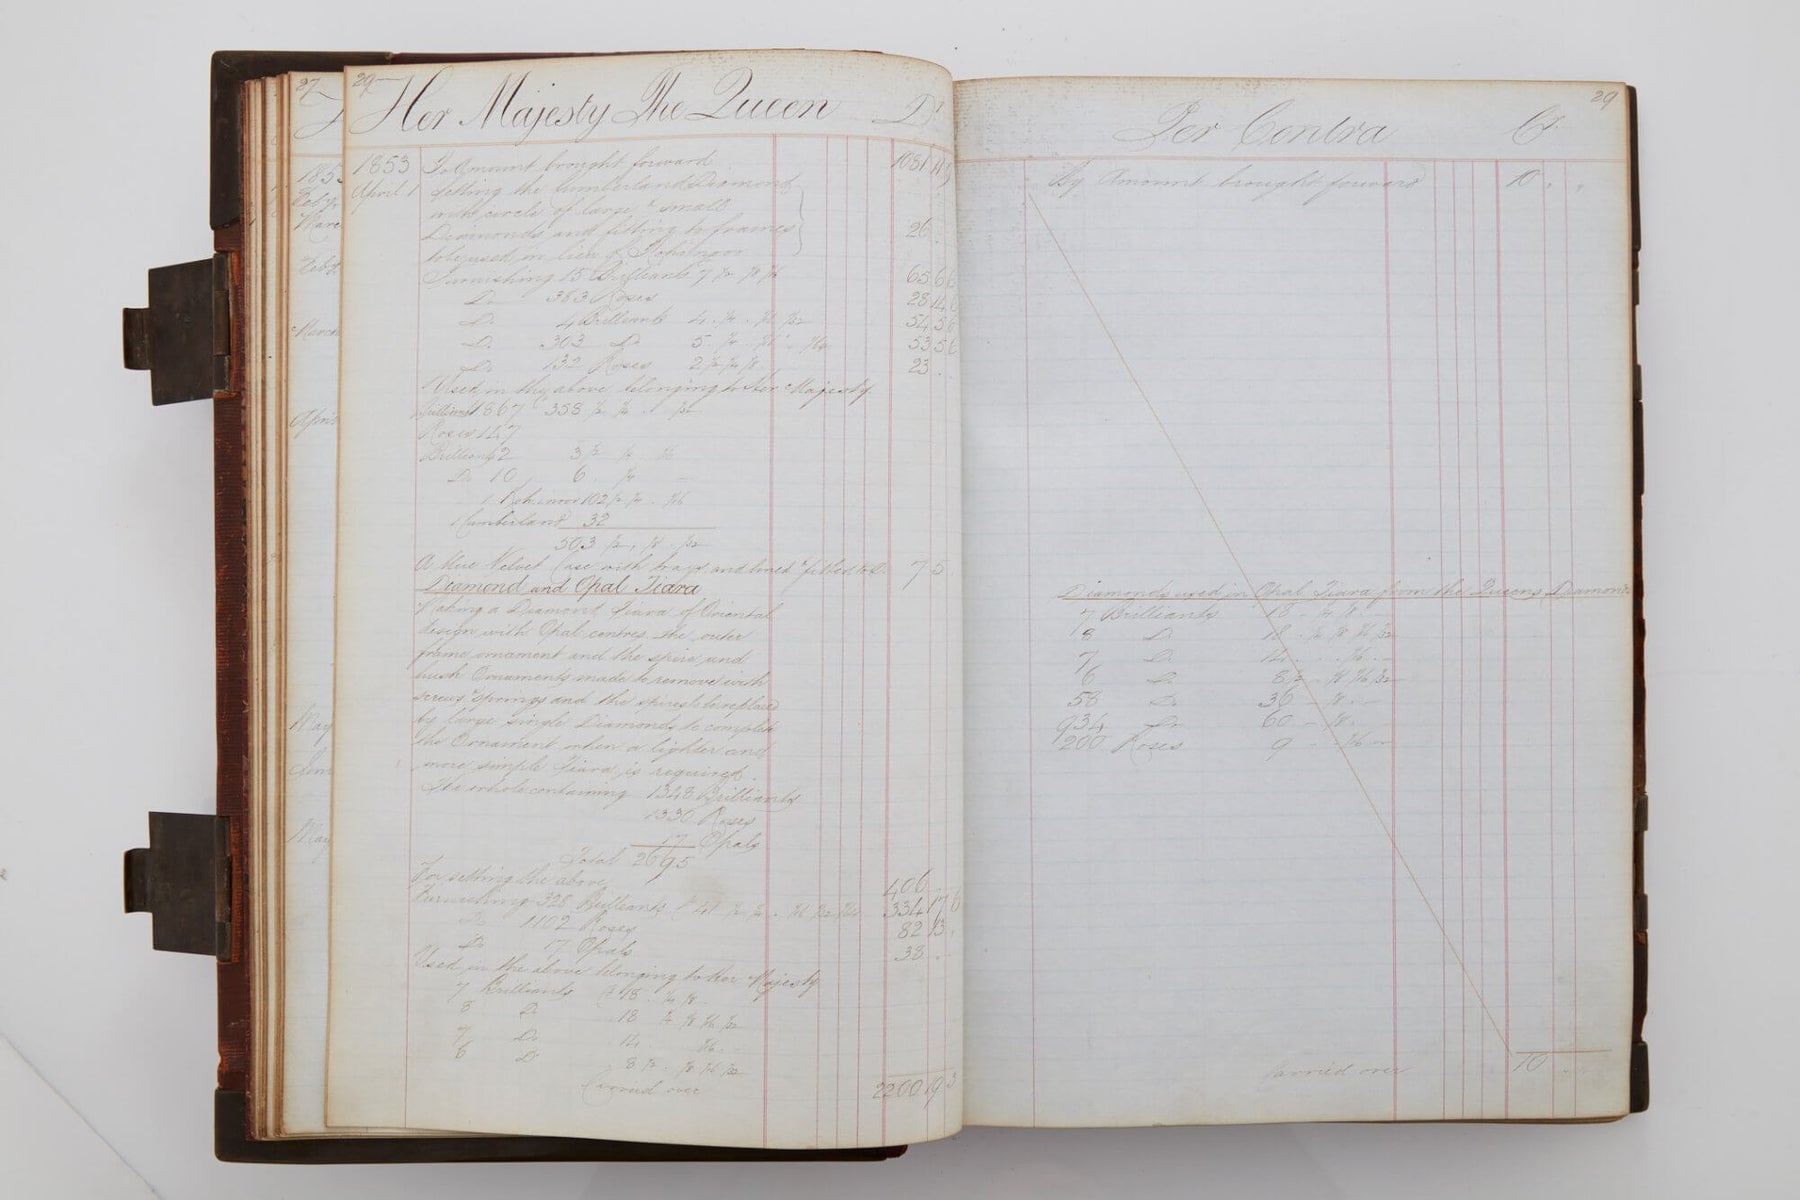 27
1853
Feby
March
Feby
March
April
May
June
May
29
Her Majesty The Queen Dr
1853 To Amount brought forward 1081
April 1 Setting the Cumberland Diamond
with circle of large & small
Diamonds and fitting to frames 26
to be used in lieu of Kohinoor
Furnishing 15 Brilliants 7 1/2 1/8 1/16 65 6 6
Do 363 Roses 28 14 6
Do 4 Brilliants 4 1/4 1/16 1/32 54 5 6
Do 303 Do 5 1/4 1/16 1/64 53 5 6
Do 132 Roses 2 1/2 1/4 1/8 23
Used in the above belonging to Her Majesty
Brilliants 1867 358 1/2 1/4 1/32
Roses 147
Brilliants 2 3 1/2 1/4 1/16
Do 10 6 1/4
1 Kohinoor 102 1/2 1/4 1/16
1 Cumberland 32
503 1/2 1/8 1/32
A blue Velvet Case with trays and lined & fitted to Do 7 5
Diamond and Opal Tiara
Making a Diamond Tiara of Oriental
design with Opal centres the outer
frame ornament and the spire and
bush Ornaments made to remove with
screws & springs and the spires to be replaced
by large single Diamonds to complete
the Ornament when a lighter and
more simple Tiara is required.
The whole containing 1348 Brilliants
1330 Roses
17 Opals
Total 2695
For setting the above 406
Furnishing 328 Brilliants Ct 41 1/2 1/4 1/16 1/32 1/64 334 17 6
Do 1102 Roses 82 13
Do 17 Opals 38
Used in the above belonging to Her Majesty
7 Brilliants Ct 18 1/4 1/8
8 Do 18 1/4 1/8 1/16 1/32
7 Do 14 1/16
6 Do 8 1/2 1/8 1/16 1/32
Carried over 2200 19 3
29
Per Contra Cr.
By Amount brought forward 10
Diamonds used in Opal Tiara from the Queens Diamonds
7 Brilliants 18 1/4 1/8
8 Do 18 1/4 1/8 1/16 1/32
7 Do 14 1/16
6 Do 8 1/2 1/8 1/16 1/32
58 Do 36 1/8
934 Do 60 1/8
200 Roses 9 1/16
Carried over 10